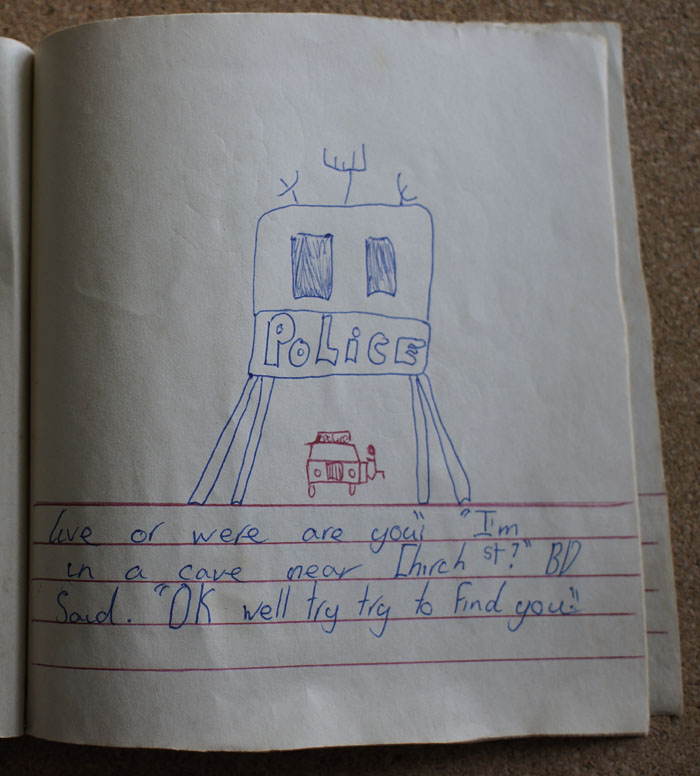 POLiCE
live or were are you" "I'm
in a cave near Chirch st?" BD
Said. "OK well try try to find you."